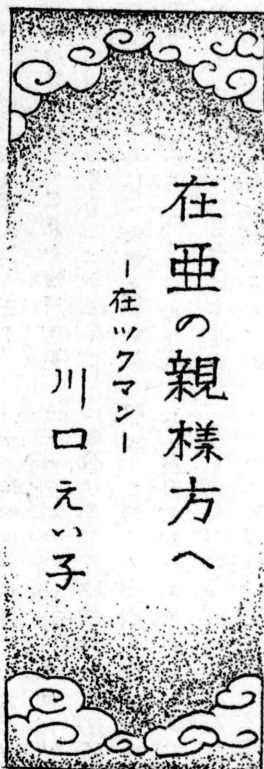 在亜の親様方へ
ー在ツクマンー
川口えい子